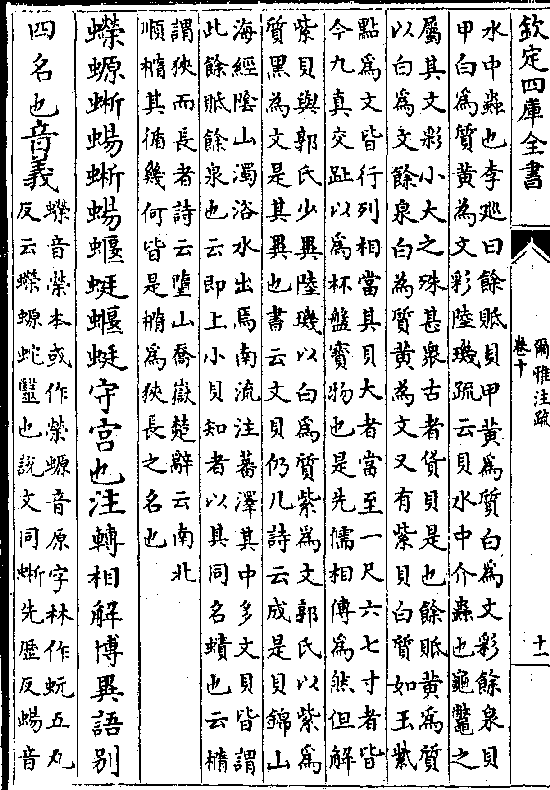 欽定四庫全書
爾雅注疏
卷十
十一
水中蟲也李廵曰餘貾貝甲黃為質白為文彩餘泉貝
甲白為質黃為文彩陸璣疏云貝水中介蟲也龜鼈之
屬其文彩小大之殊甚衆古者貨貝是也餘貾黃為質
以白為文餘泉白為質黃為文又有紫貝白質如玉紫
點為文皆行列相當其貝大者當至一尺六七寸者皆
今九真交趾以為杯盤寳物也是先儒相傳為然但解
紫貝與郭氏少異陸璣以白為質紫為文郭氏以紫為
質黑為文是其異也書云文貝仍几詩云成是貝錦山
海經隂山濁浴水出焉南流注蕃澤其中多文貝皆謂
此餘貾餘泉也云即上小貝知者以其同名蟦也云橢
謂狹而長者詩云墮山喬嶽楚辭云南北
順橢其循幾何皆是橢為狹長之名也
蠑螈蜥蜴蜥蜴蝘蜓蝘蜓守宮也注轉相解博異語别
四名也音義
蠑音榮本或作榮螈音原字林作蚖五丸
反云蠑螈蛇醫也說文同蜥先歷反蜴音